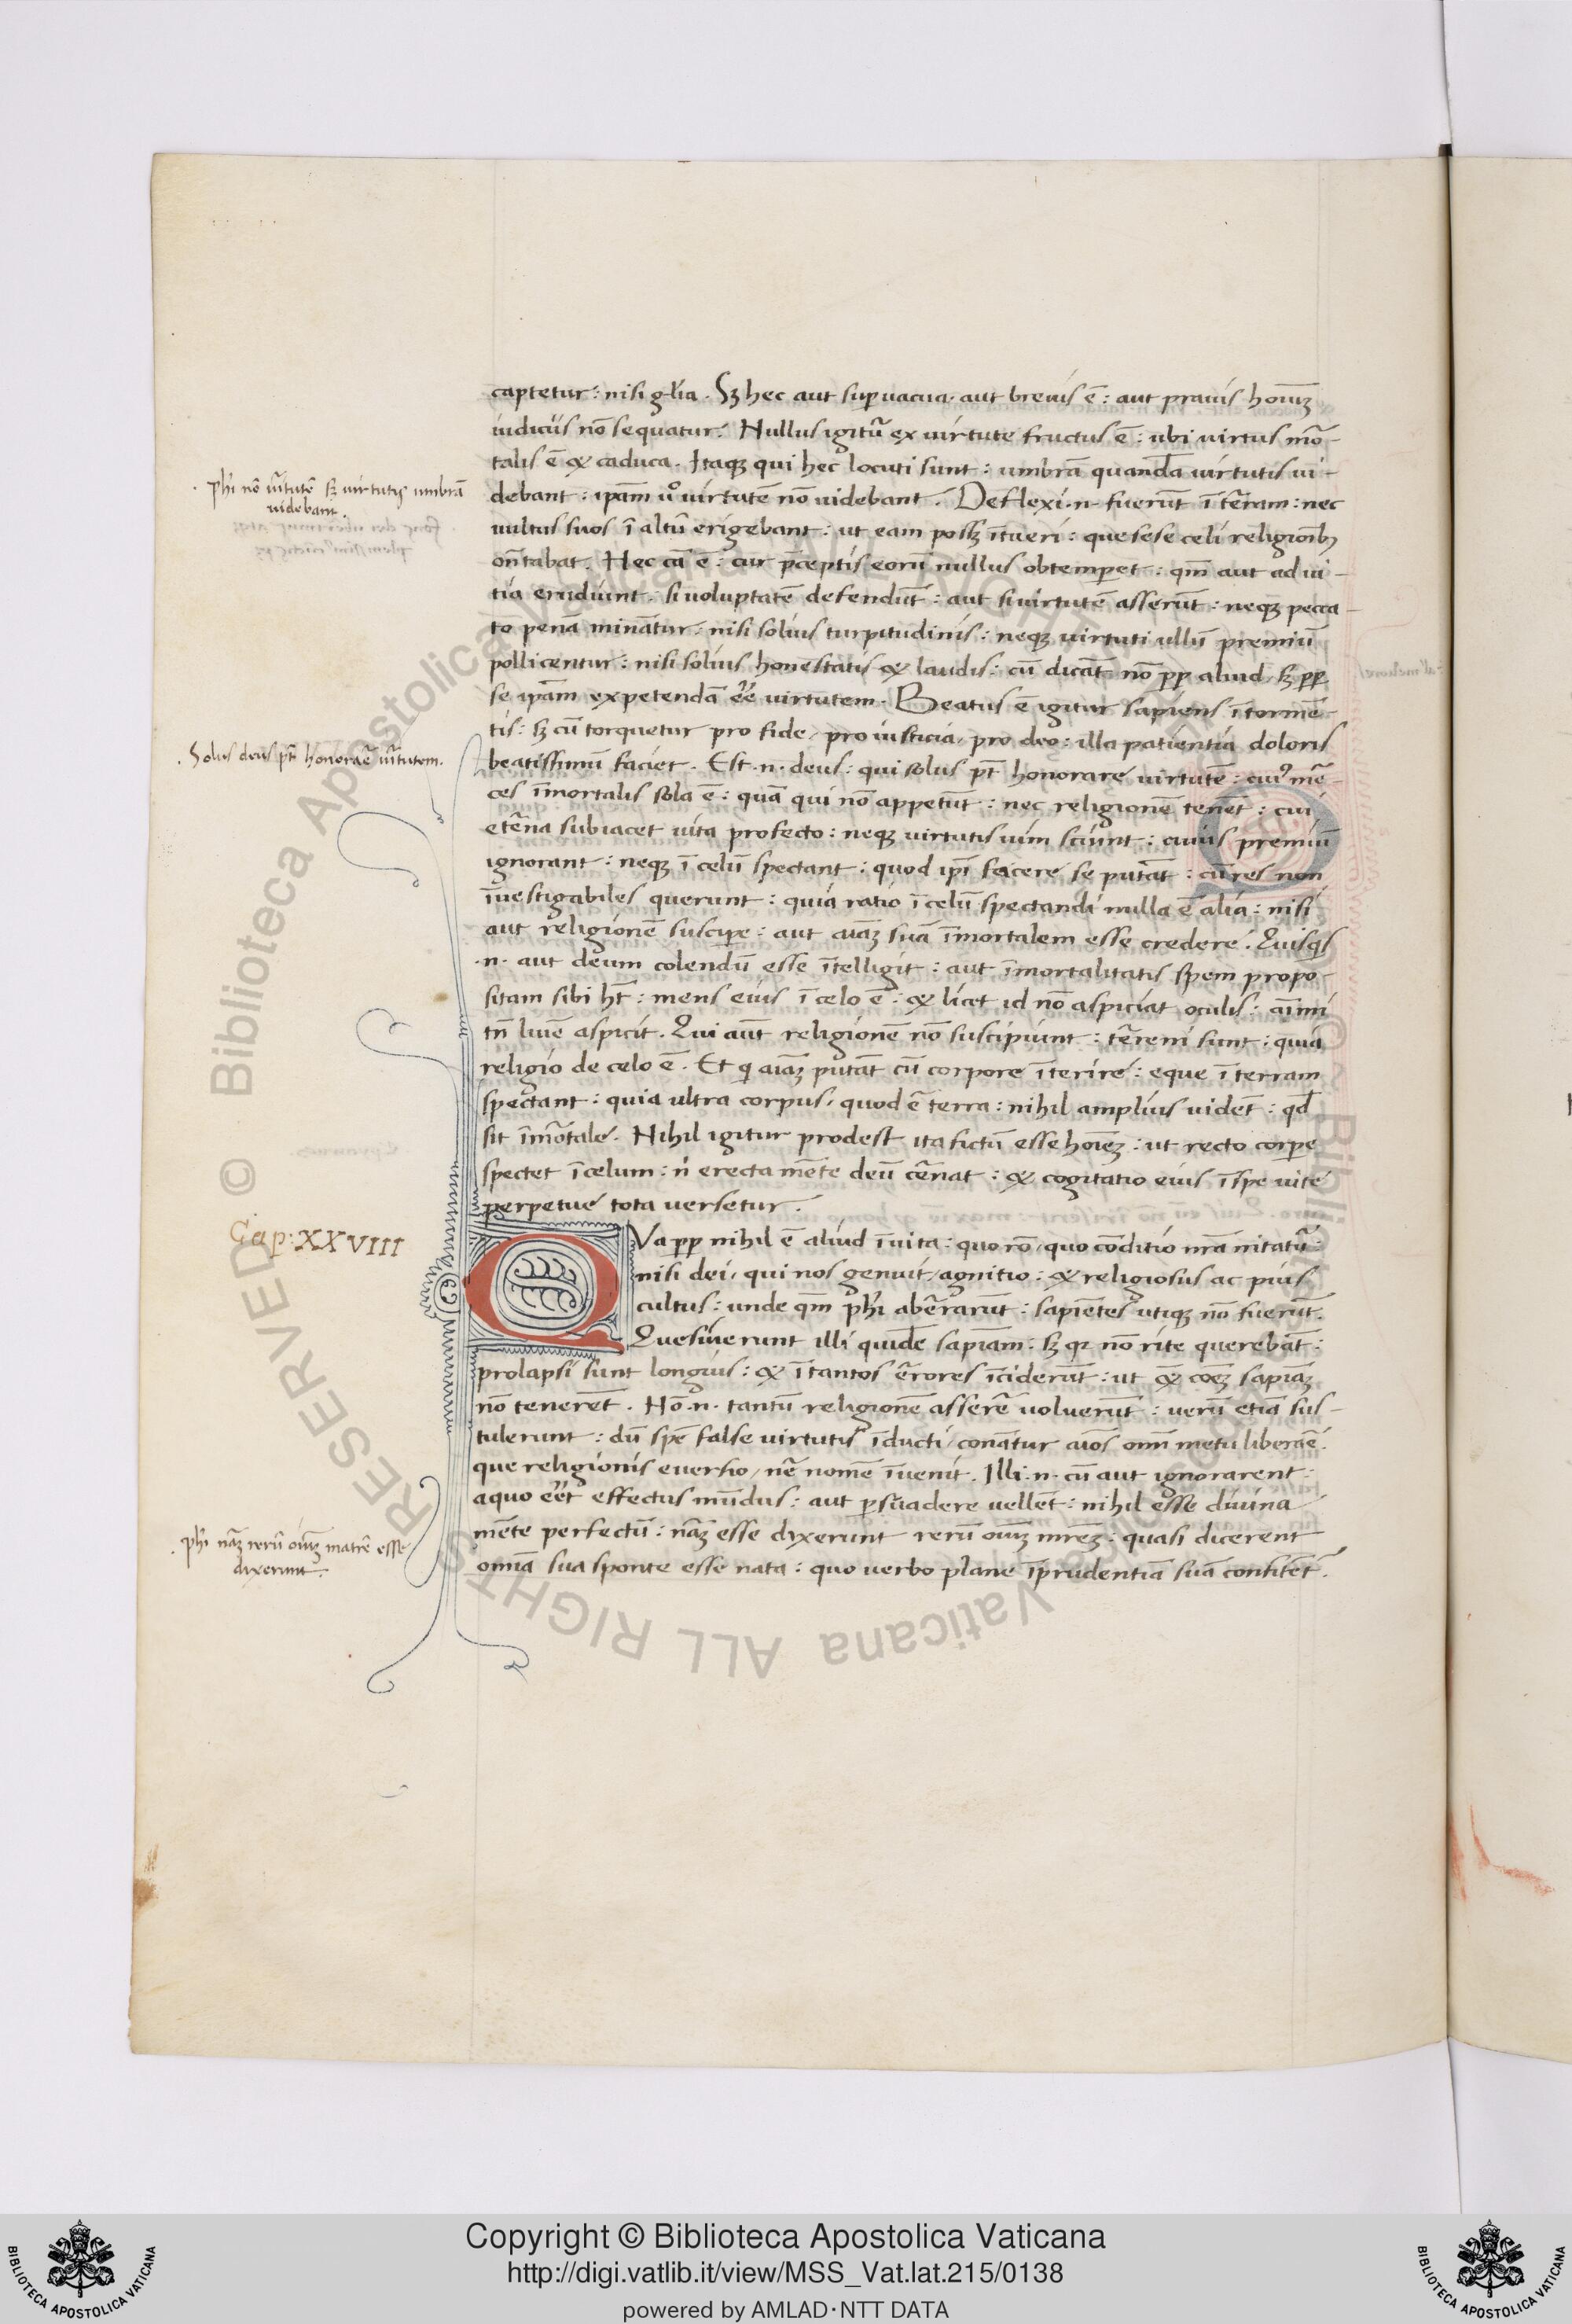 captetur: nisi gl̄ia. Sꝫ hec aut sup̱uacua. aut breuis ē: aut prauis hoīuꝫ
iudicijs nō sequatur. Nullus igitū ex uirtute fructus ē: ubi uirtus mō-
talis ē & caduca. Itaqꝫ qui hec locuti sunt: umbrā quandā uirtutis ui-
· ph̄i nō ūtutē sꝫ uirtutis umbrā
uidebant.
debant: ip̄am u͛o uirtutē nō uidebant. Deflexi .n. fuerūt ī t̄eram: nec
uultus suos ī altū erigebant: ut eam possꝫ ītueri: que sese celi religionibꝫ
on̄tabat. Hec cā ē: cur p̄ceptis eorū nullus obtemp̱et: qm̄ aut ad ui-
tia erudiunt. si uoluptatē defendūt: aut si uirtutē asserūt: neqꝫ pecca-
to penā minātur: nisi solius turpitudinis: neqꝫ uirtuti ullū premiū
pollicentur: nisi solius honestatis & laudis: cū dicāt nō pp̱ aliud, sꝫ pp̱
se ip̄am expetendā ēe uirtutem. Beatus ē igitur sapiens ī tormē-
tis: sꝫ cū torquetur pro fide, pro iusticia, pro deo: illa patientia doloris
. Solus deus pt̄ honorāe ūtutem.
beatissimū faciet. Est .n. deus: qui solus pt̄ honorare uirtutē: cui᾽ mē-
ces īmortalis sola ē: quā qui nō appetūt: nec religionē tenēt: cui
et̄na subiacet uita profecto: neqꝫ uirtutis uim sciunt: cuius premiū
ignorant: neqꝫ ī celū spectant: quod ip̄i facere se putāt: cū res non
īuestigabiles querunt: quia ratio ī celū spectandi nulla ē alia: nisi
aut religionē suscip̱e: aut aīaꝫ suā īmortalem esse credere. Quisq̱s
.n. aut deum colendū esse ītelligit: aut īmortalitatis spem propo-
sitam sibi ht̄: mens eius ī celo ē: & licet id nō aspiciat oculis: aīmi
tn̄ lumē aspicit. Qui aūt religionē nō suscipiunt: t̄ereni sunt: quia
religio de celo ē. Et q̱ aīaꝫ putāt cū corpore īterire: eque ī terram
spectant: quia ultra corpus, quod ē terra: nihil amplius uidēt: qd̄
sit īmōtale. Nihil igitur prodest ita fictū esse hoīeꝫ: ut recto corp̱e
spectet ī celum: nͥ erecta mēte deū c̄enat: & cogitatio eius ī spe uite
perpetue tota uersetur.
Cap: XXVIII
QVa pp̱ nihil ē aliud ī uita: quo rō, quo cōditio nr̄a nitatū:
nisi dei, qui nos genuit, agnitio: & religiosus ac pius
cultus: unde qm̄ ph̄i ab̄erarūt: sapiētes utiqꝫ nō fuerūt.
Quesiuerunt illi quidē sapiām: sꝫ q̱ nō rite querebāt:
prolapsi sunt longius: & ī tantos ērores īciderūt: ut & cōeꝫ sapiāꝫ
nō tenerēt. Nō .n. tantū religionē asserē uoluerūt: uerū etiā sus-
tulerunt: dū spē false uirtutis īducti, conātur aīos oīni metu liberāe.
que religionis euersio, nāe nomē īuenit. Illi .n. cū aut ignorarent
a quo ēet effectus mūdus: aut p̱suadere uellēt: nihil esse diuina
· ph̄i nāꝫ rerū oīuꝫ matrē esse
dixerunt.
mēte perfectū: nāꝫ esse dixerunt rerū oīuꝫ mr̄eꝫ: quasi dicerent
omīa sua sponte esse nata: quo uerbo plane īprudentiā suā confitēt᾽.
© Biblioteca Apostolica Vaticana ALL RIGHTS RESERVED
Copyright © Biblioteca Apostolica Vaticana
http://digi.vatlib.it/view/MSS_Vat.lat.215/0138
powered by AMLAD·NTT DATA
BIBLIOTECA APOSTOLICA VATICANA
BIBLIOTECA APOSTOLICA VATICANA